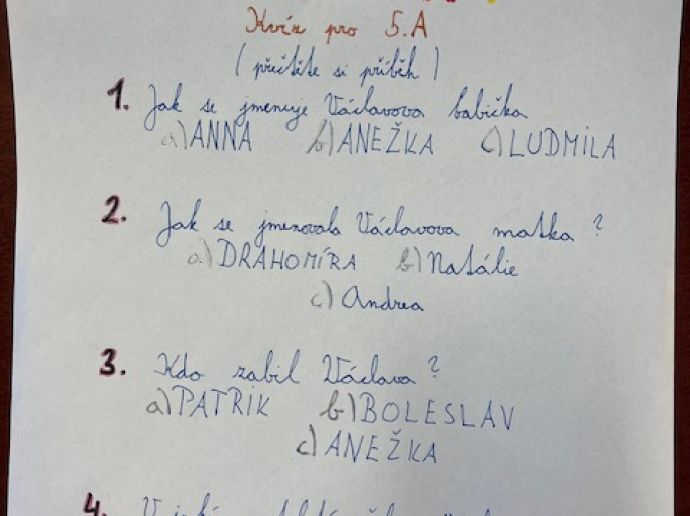 Kvíz pro 5.A
(přečtěte si příběh)
1. Jak se jmenuje Václavova babička
a) ANNA b) ANEŽKA c) LUDMILA
2. Jak se jmenovala Václavova matka?
a) DRAHOMÍRA b) Natálie
c) Andrea
3. Kdo zabil Václava?
a) PATRIK b) BOLESLAV
c) ANEŽKA
4.